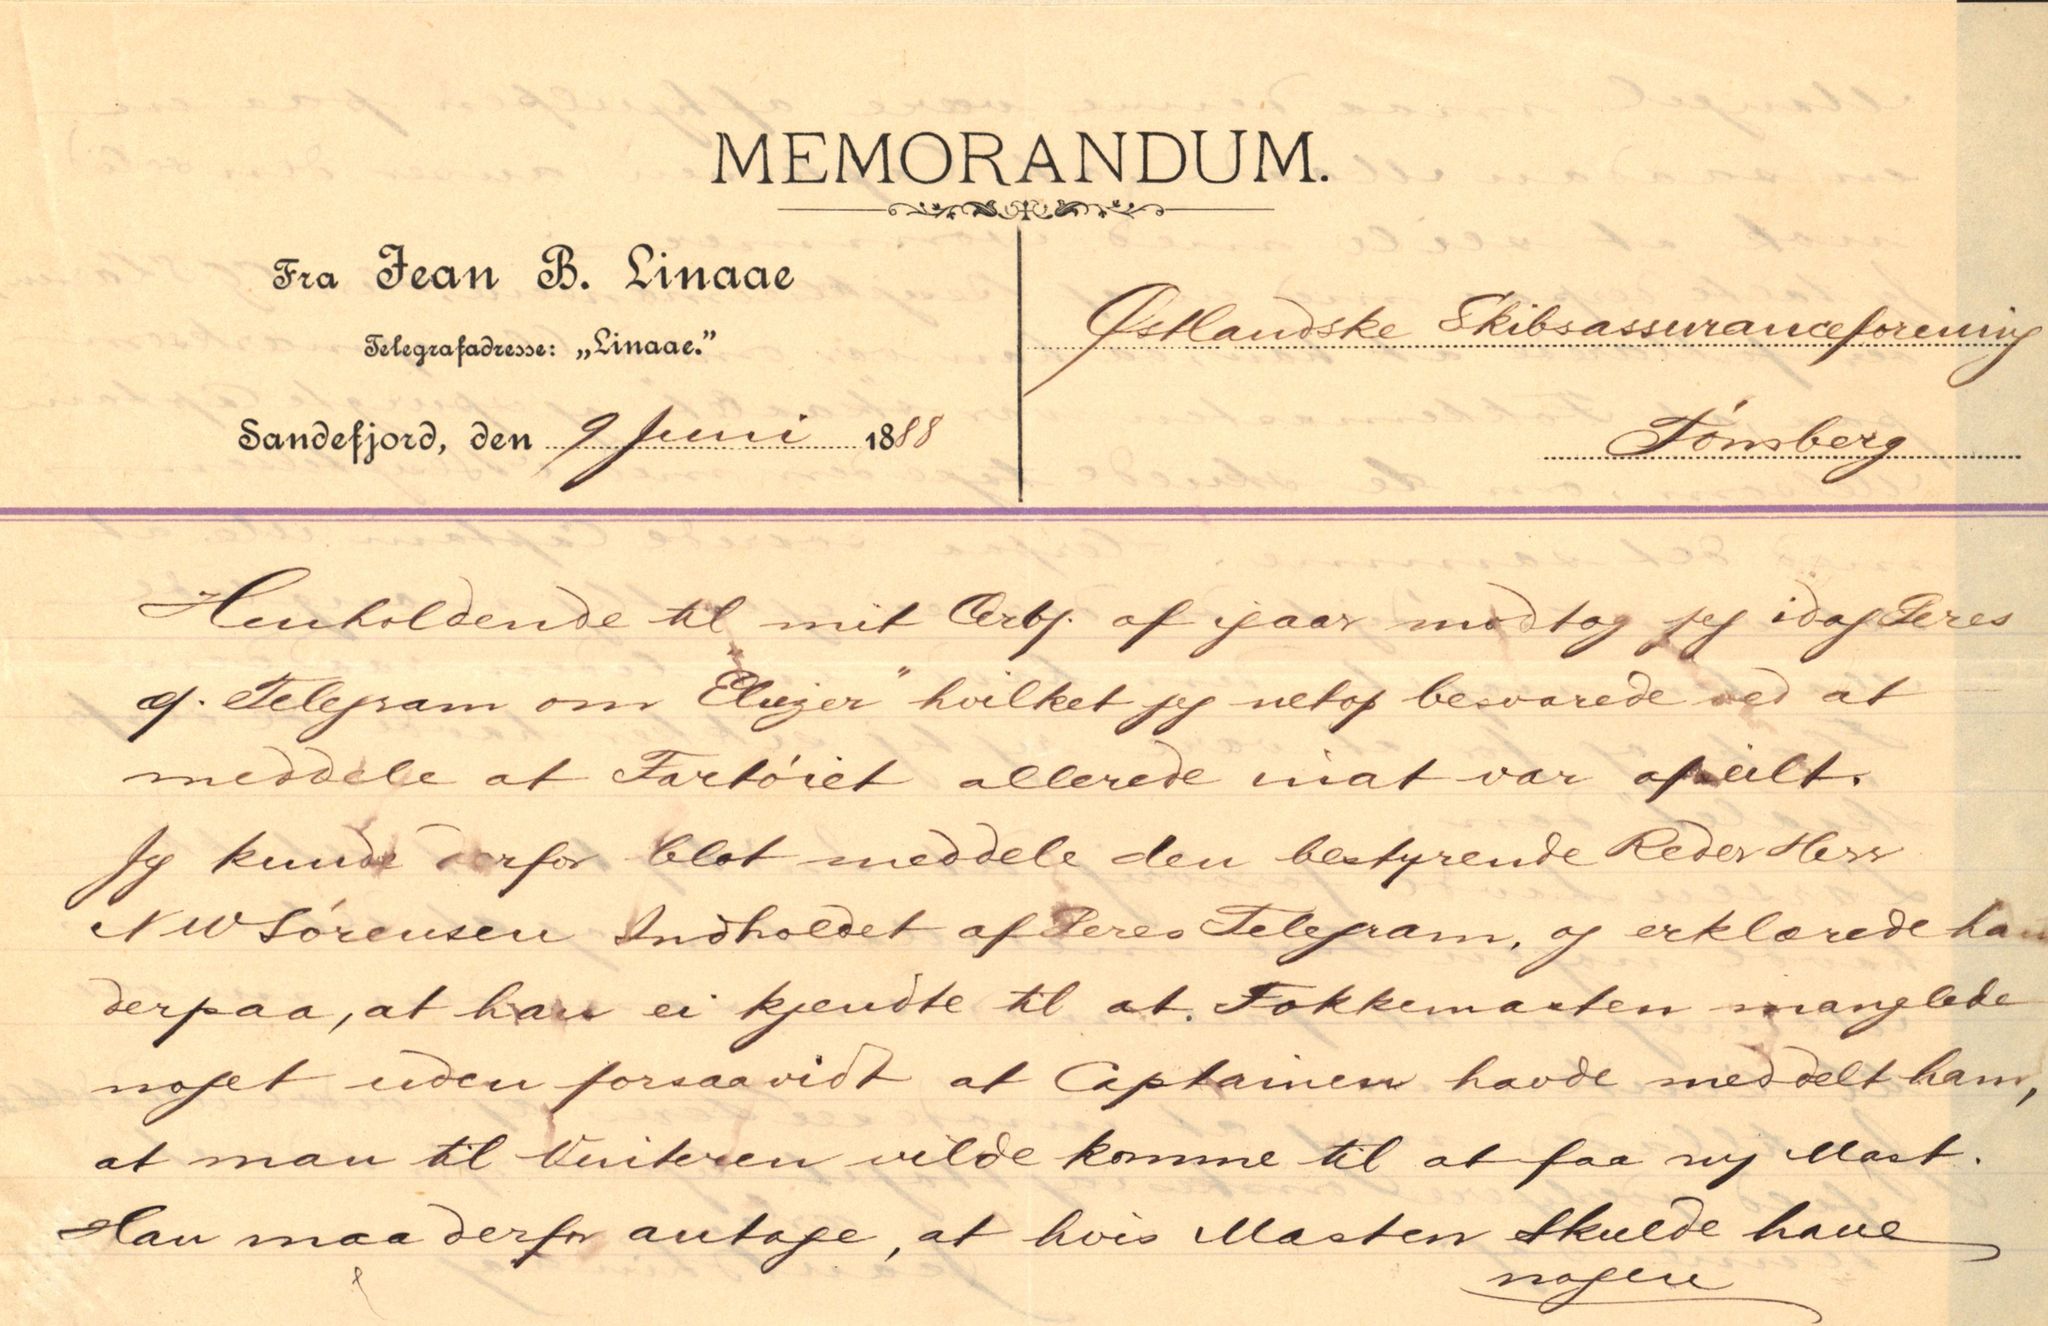 MEMORANDUM.
Fra Jean B. Linaae
Telegrafadresse: „Linaae.”
Sandefjord, den 9 Juni 1888
Østlandske Skibsassuranceforening
Tønsberg
Henholdende til mit Ærbj. af igaar modtog jeg idag Deres
Telegram om "Eliezer" hvilket jeg netop besvarede ved at
meddele at Fartøiet allerede inat var afseilt.
Jeg kunde derfor blot meddele den bestyrende Reder Herr
N W Sørensen Indholdet af Deres Telegram, og erklærede han
derpaa, at han ei kjendte til at Fokkemasten manglede
noget uden forsaavidt at Captainen havde meddelt ham,
at man til Vinteren vilde komme til at faa ny Mast.
Han maa derfor antage, at hvis Masten skulde have
nogen